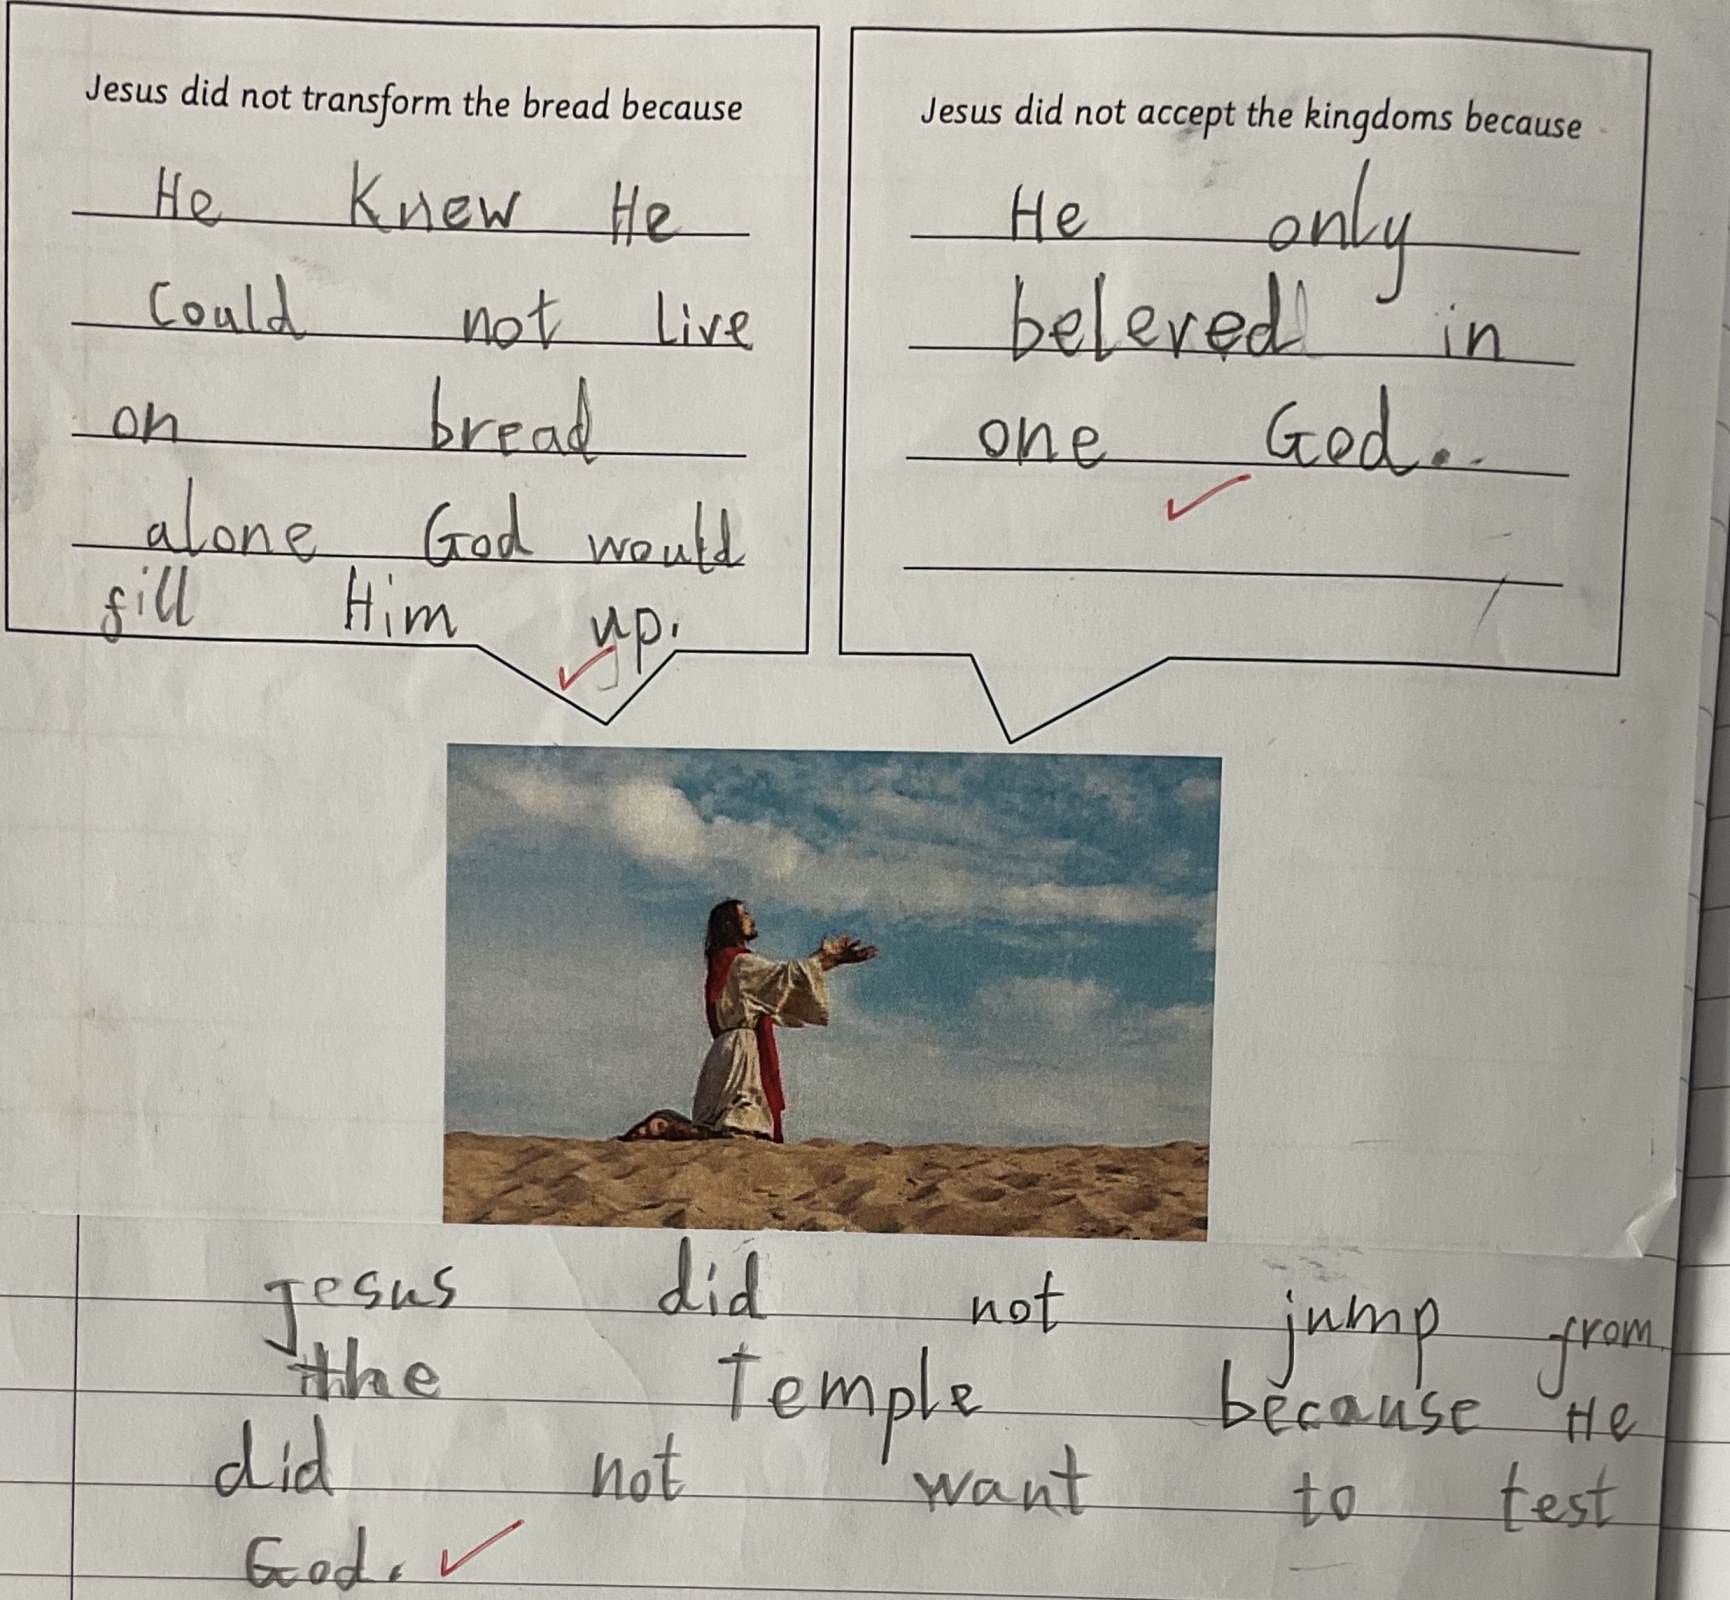 Jesus did not transform the bread because
He Knew He
Could not Live
on bread
alone God would
fill Him up.
Jesus did not accept the kingdoms because
He only
beleved in
one God.
Jesus did not jump from
the Temple because He
did not want to test
God.